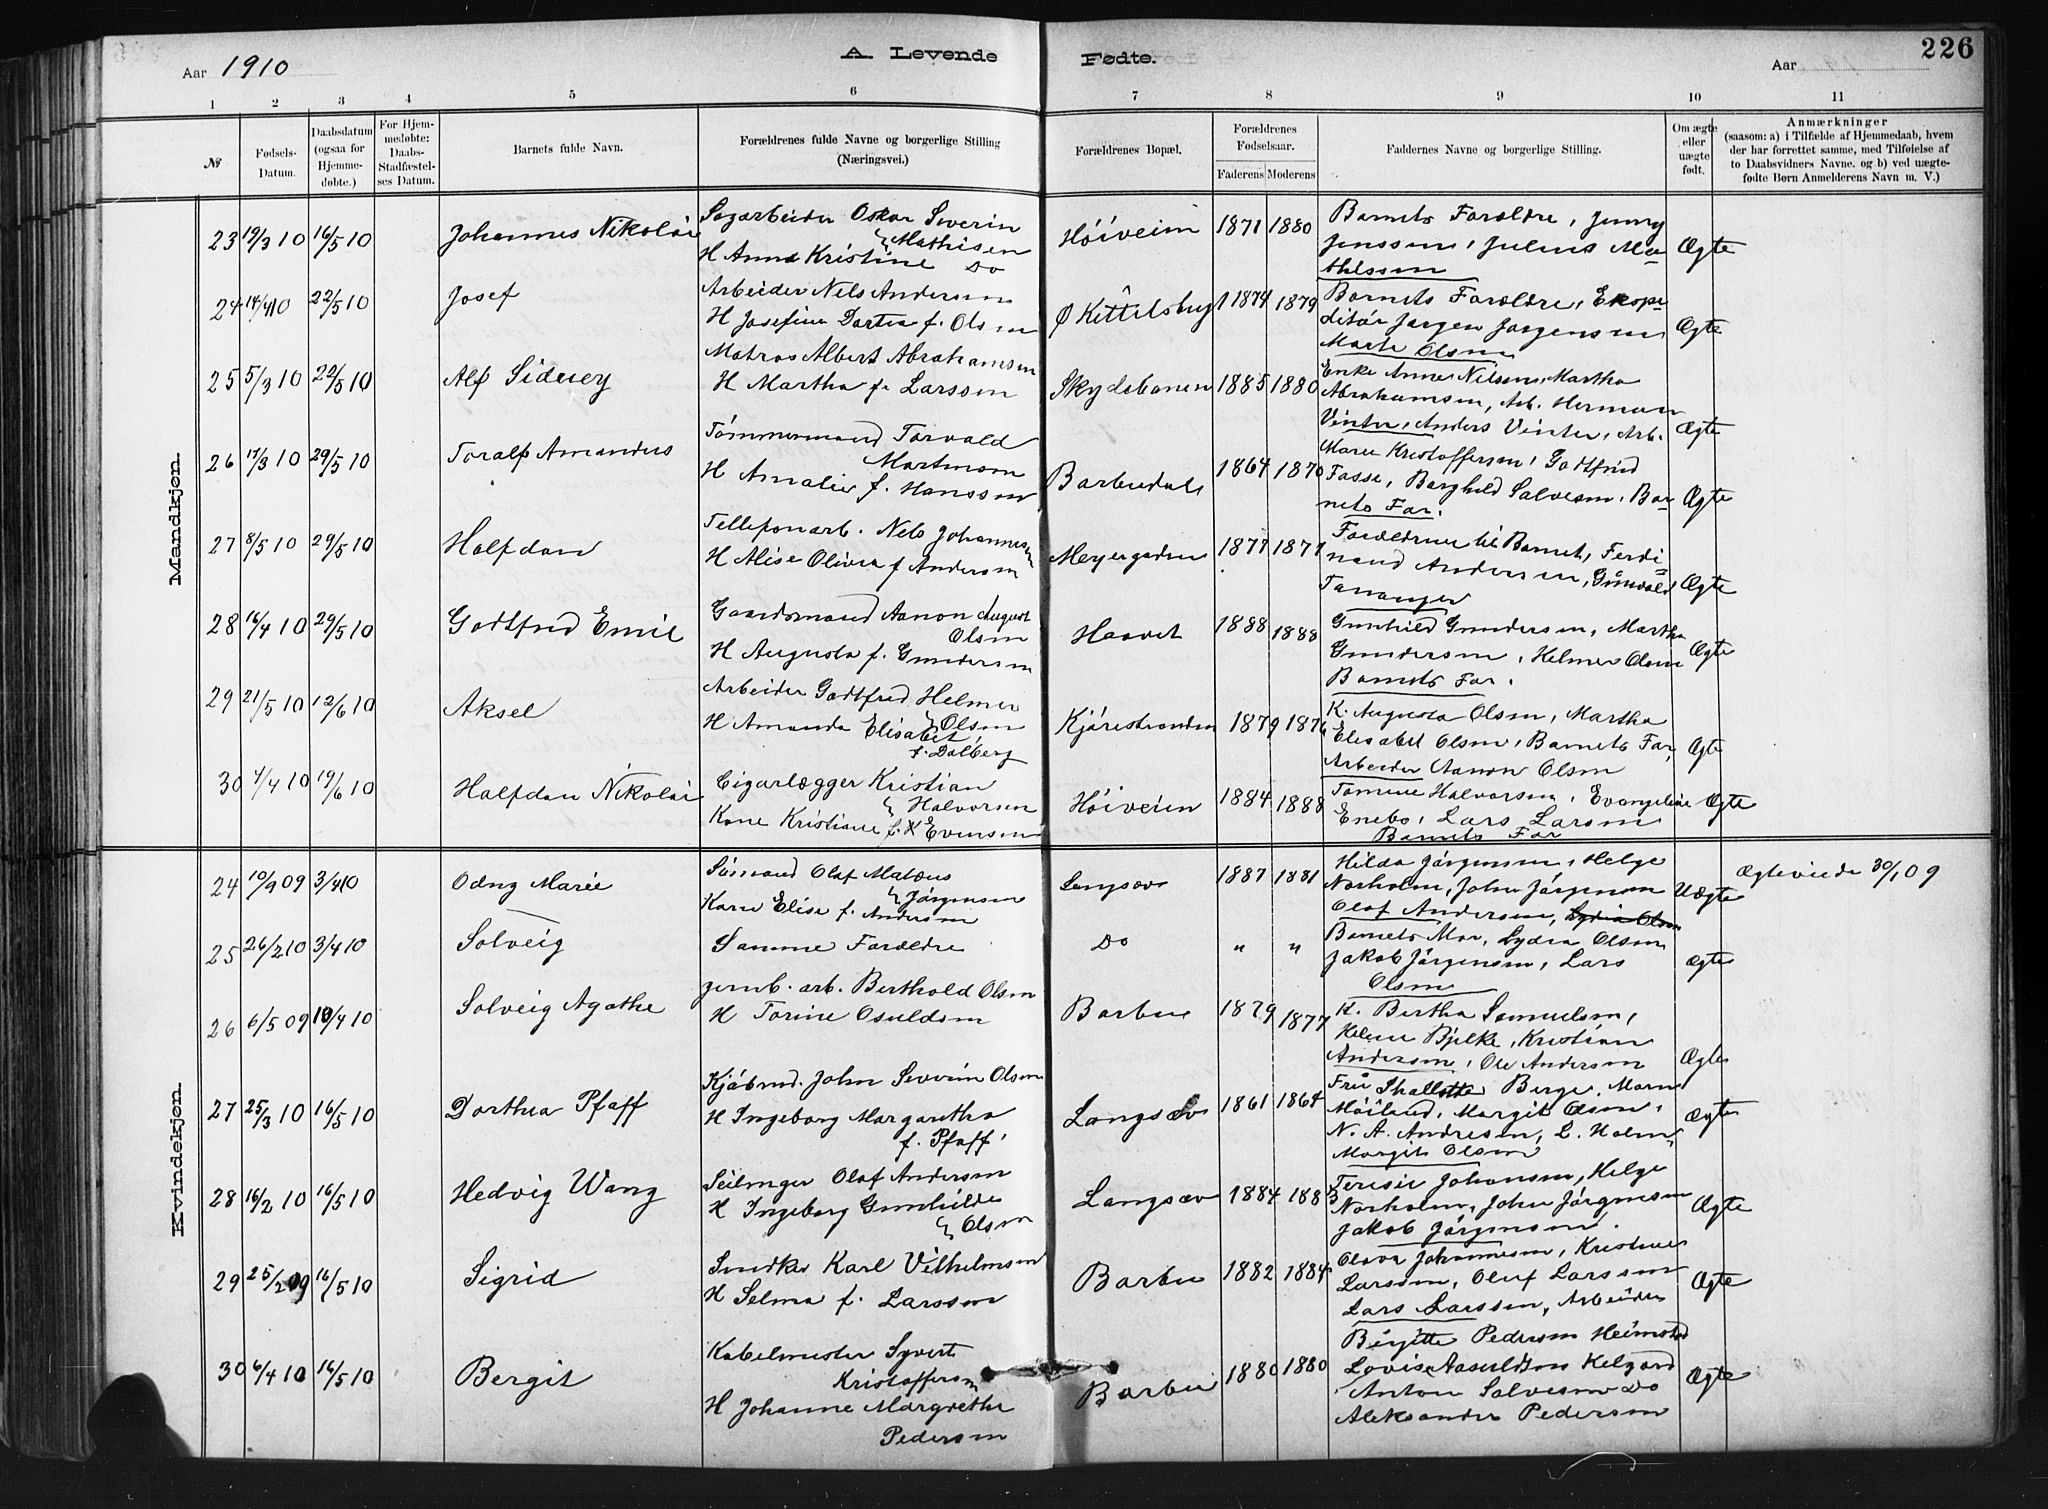 Aar 1910
A. Levende Fødte.
Aar
226
1 2 3 4 5 6 7 8 9 10 11
№
Fødsels-Datum.
Daabsdatum (ogsaa for Hjemmedøbte.)
For Hjemmedøbte: Daabs-Stadfæstelses Datum.
Barnets fulde Navn.
Forældrenes fulde Navne og borgerlige Stilling (Næringsvei.)
Forældrenes Bopæl.
Forældrenes Fødselsaar.
Faderens Moderens
Faddernes Navne og borgerlige Stilling.
Om ægte eller uægte født.
Anmærkninger
(saasom: a) i Tilfælde af Hjemmedaab, hvem
der har forrettet samme, med Tilføielse af
to Daabsvidners Navne. og b) ved uægte-
fødte Børn Anmelderens Navn m. V.)
Mandkjøn.
23 19/3 10 16/5 10 Johannes Nikolai
Sagarbeider Oskar Severin
Mathisen
H Anna Kristine Do
Høiveien 1871 1880
Barnets Forældre, Jenny
Jenssen, Julius Ma-
thissen
Ægte
24 14/4 10 22/5 10 Josef
Arbeider Nils Andersen
H Josefine Dortea f. Olsen
Ø Kittelsbugt 1874 1879
Barnets Forældre, Ekspe-
ditør Jørgen Jørgensen
Marte Olsen
Ægte
25 5/3 10 22/5 10 Alf Sidney
Matros Albert Abrahamsen
H Martha f. Larssen
Skydebanen 1885 1880
Enke Anne Nilsen, Martha
Abrahamsen, Arb. Herman
Vinter, Anders Vinter, Arb.
Ægte
26 17/3 10 29/5 10 Toralf Amandus
Tømmermand Torvald
Martinsen
H Amalie f. Hanssen
Barbudal 1864 1870
Maren Kristoffersen, Godtfred
Fosse, Borghild Salvesen, Bar-
nets Far.
Ægte
27 8/5 10 29/5 10 Halfdan
Tellefonarb. Nels Johannesen
H Alise Olivia f Andersen
Meyergaden 1877 1877
Forældrene til Barnet, Ferdi-
nand Andersen, Gunvald
Tananger
Ægte
28 16/4 10 29/5 10 Godtfred Emil
Gaardsmand Aanon August
Olsen
H Augusta f. Gundersen
Haavet 1888 1888
Gunhild Gundersen, Martha
Gundersen, Helmer Olsen
Barnets Far.
Ægte
29 21/5 10 12/6 10 Aksel
Arbeider Godtfred Helmer
Olsen
H Amanda Elisabet
f. Dalberg
Kjørestranden 1879 1876
K. Augusta Olsen, Martha
Elisabet Olsen, Barnets Far,
Arbeider Aanon Olsen
Ægte
30 4/4 10 19/6 10 Halfdan Nikolai
Cigarlægger Kristian
Halvorsen
Kone Kristiane f. Evensen
Høiveien 1884 1888
Tomine Halvorsen, Evangeline
Enebo, Lars Larsen
Barnets Far
Ægte
Kvindekjøn.
24 10/9 09 3/4 10 Odny Marie
Sømand Olaf Mateus
Jørgensen
Kone Elise f. Andersen
Langsæv 1887 1881
Hilda Jørgensen, Helge
Norholm, John Jørgensen
Olaf Andersen, Lydia Olsen
Uægte
Ægteviede 30/1 09
25 26/2 10 3/4 10 Solveig
Samme Forældre
Do " "
Barnets Mor, Lydia Olsen
Jakob Jørgensen, Lars
Olsen
Ægte
26 6/5 09 10/4 10 Solveig Agathe
Jernb. arb. Berthold Olsen
H Torine Osuldsen
Barbu 1879 1877
K. Bertha Samuelsen,
Helene Bjelke, Kristian
Andersen, Ole Andersen
Ægte
27 25/3 10 16/5 10 Dorthea Pfaff
Kjøbmd. John Severin Olsen
H Ingeborg Margaretha
f. Pfaff.
Langsæv 1861 1864
Frü Shallotte Berge, Maren
Møiland, Margit Olsen,
N. A. Andresen, L. Holm,
Margit Olsen
Ægte
28 16/2 10 16/5 10 Hedvig Wang
Seilmager Olaf Andersen
H Ingeborg Gunhilde
Olsen
Langsæv 1884 1883
Teresie Johansen, Helge
Norholm, John Jørgensen
Jakob Jørgensen.
Ægte
29 25/2 09 16/5 10 Sigrid
Snedker Karl Vilhelmsen
H Selma f. Larssen
Barbu 1882 1884
Olava Johannesen, Kristine
Larssen, Oluf Larssen
Lars Larssen, Arbeider
Ægte
30 6/4 10 16/5 10 Bergit
Kabelmester Syvert
Kristoffersen
H Johanne Margrethe
Pedersen
Barbu 1880 1880
Birgitte Pedersen Heimstad
Lovise Aasuldsen Helgard
Anton Salvesen Do
Aleksander Pedersen
Ægte